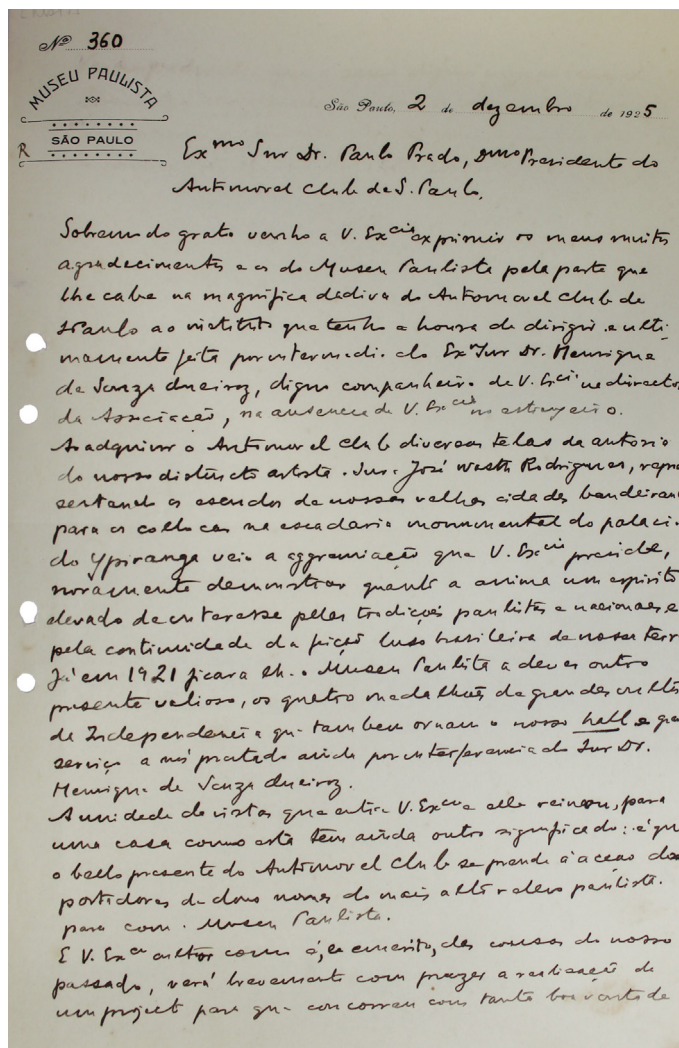 Nº 360
MUSEU PAULISTA
SÃO PAULO
R
São Paulo, 2 de dezembro de 1925
Exmo Snr Dr. Paulo Prado, Dmo Presidente do
Automovel Club de S. Paulo.
Sobremodo grato venho a V. Excia exprimir os meus muitos
agradecimentos e os do Museu Paulista pela parte que
lhe cabe na magnifica dadiva do Automovel Club de
S Paulo ao instituto que tenho a honra de dirigir e ulti-
mamente feita por intermedio do Exmo Snr Dr. Henrique
de Souza Queiroz, digno companheiro de V. Excia na directo
da Associação, na ausencia de V. Excia no estrangeiro.
Ao adquirir o Automovel Club diversas telas da autoria
do nosso distincto artista Snr José Wasth Rodrigues, repre
sentando os escudos de nossas velhas cidades bandeiran
para os collocar na escadaria monumental do palacio
do Ypiranga veio a aggremiação que V. Excia preside,
novamente demonstrar quanto a anima um espirito
elevado de interesse pelas tradições paulistas e nacionaes e
pela continuidade da feição luso brasileira de nossa terr
Já em 1921 ficara lhe o Museu Paulista a dever outro
presente valioso, os quatro medalhões de grandes vultos
da Independencia que tambem ornam o nosso hall e gra
serviço a nós prestado ainda por interferencia do Snr Dr.
Henrique de Souza Queiroz.
A unidade de vistas que entre V. Excia e elle reinou, para
uma casa como esta tem ainda outro significado: é que
o bello presente do Automovel Club se prende á acção dos
portadores de dous nomes do mais alto relevo paulista.
para com o Museu Paulista.
E V. Excia cultor como é, e emerito, das cousas do nosso
passado, verá brevemente com prazer a realização de
um projecto para que concorreu com tanta boa vontade